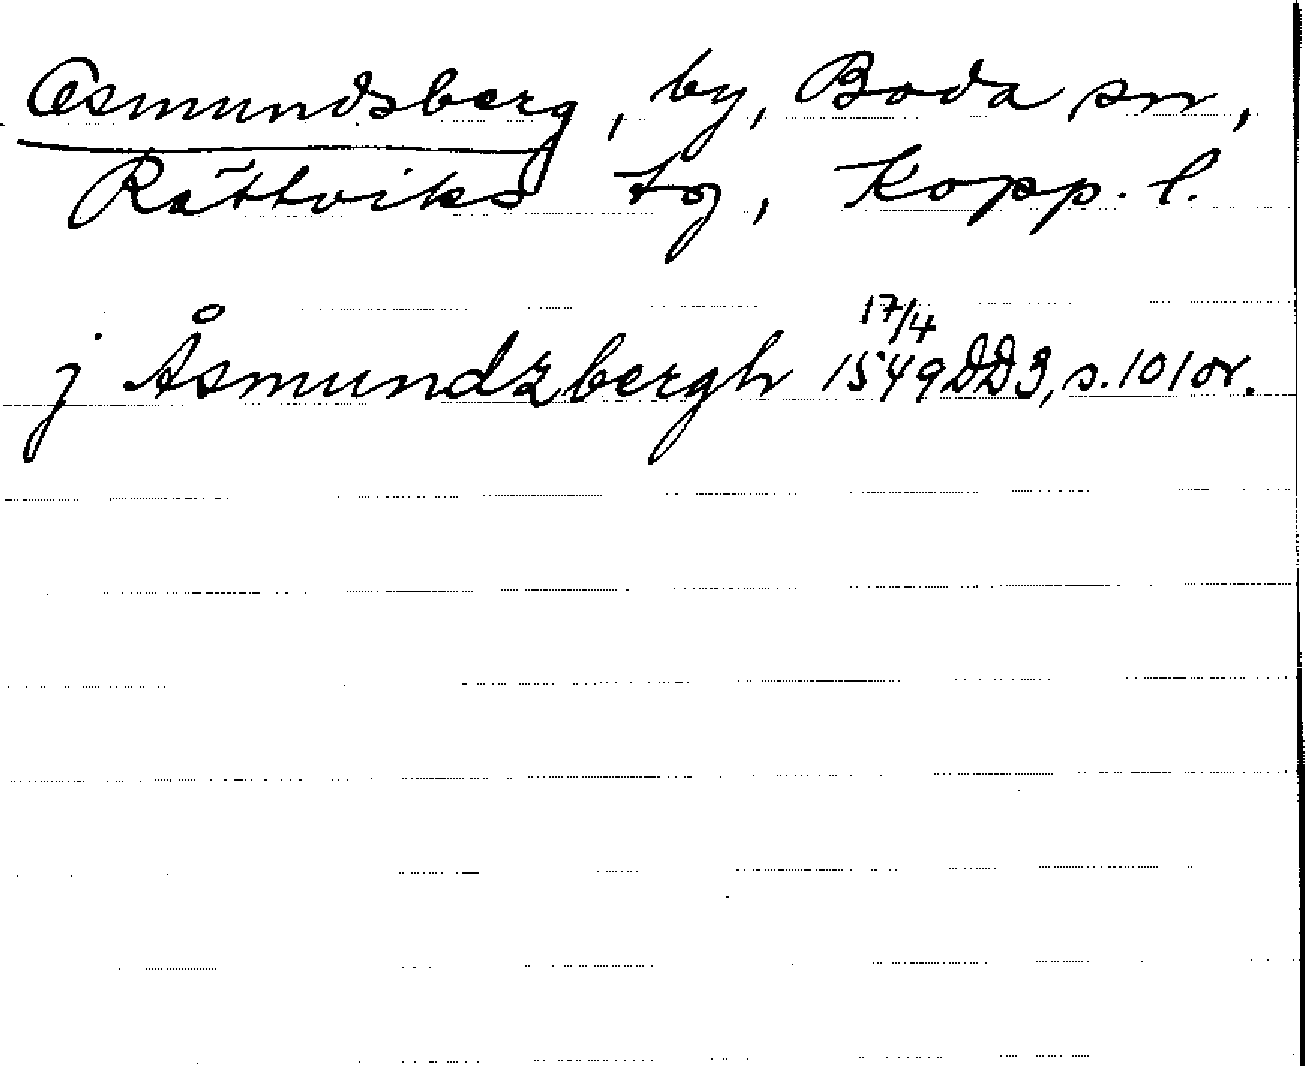 Osmundsberg, by, Boda sn,
Rättviks tg, Kopp. l.
j Åsmundzbergh 17/4 1549 DD3, s. 101 or.